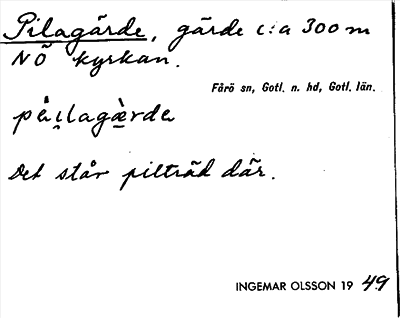 Pilagärde, gärde c:a 300 m
NÖ kyrkan.
Fårö sn, Gotl. n. hd, Gotl. län.
Det står pilträd där.
INGEMAR OLSSON 19 49